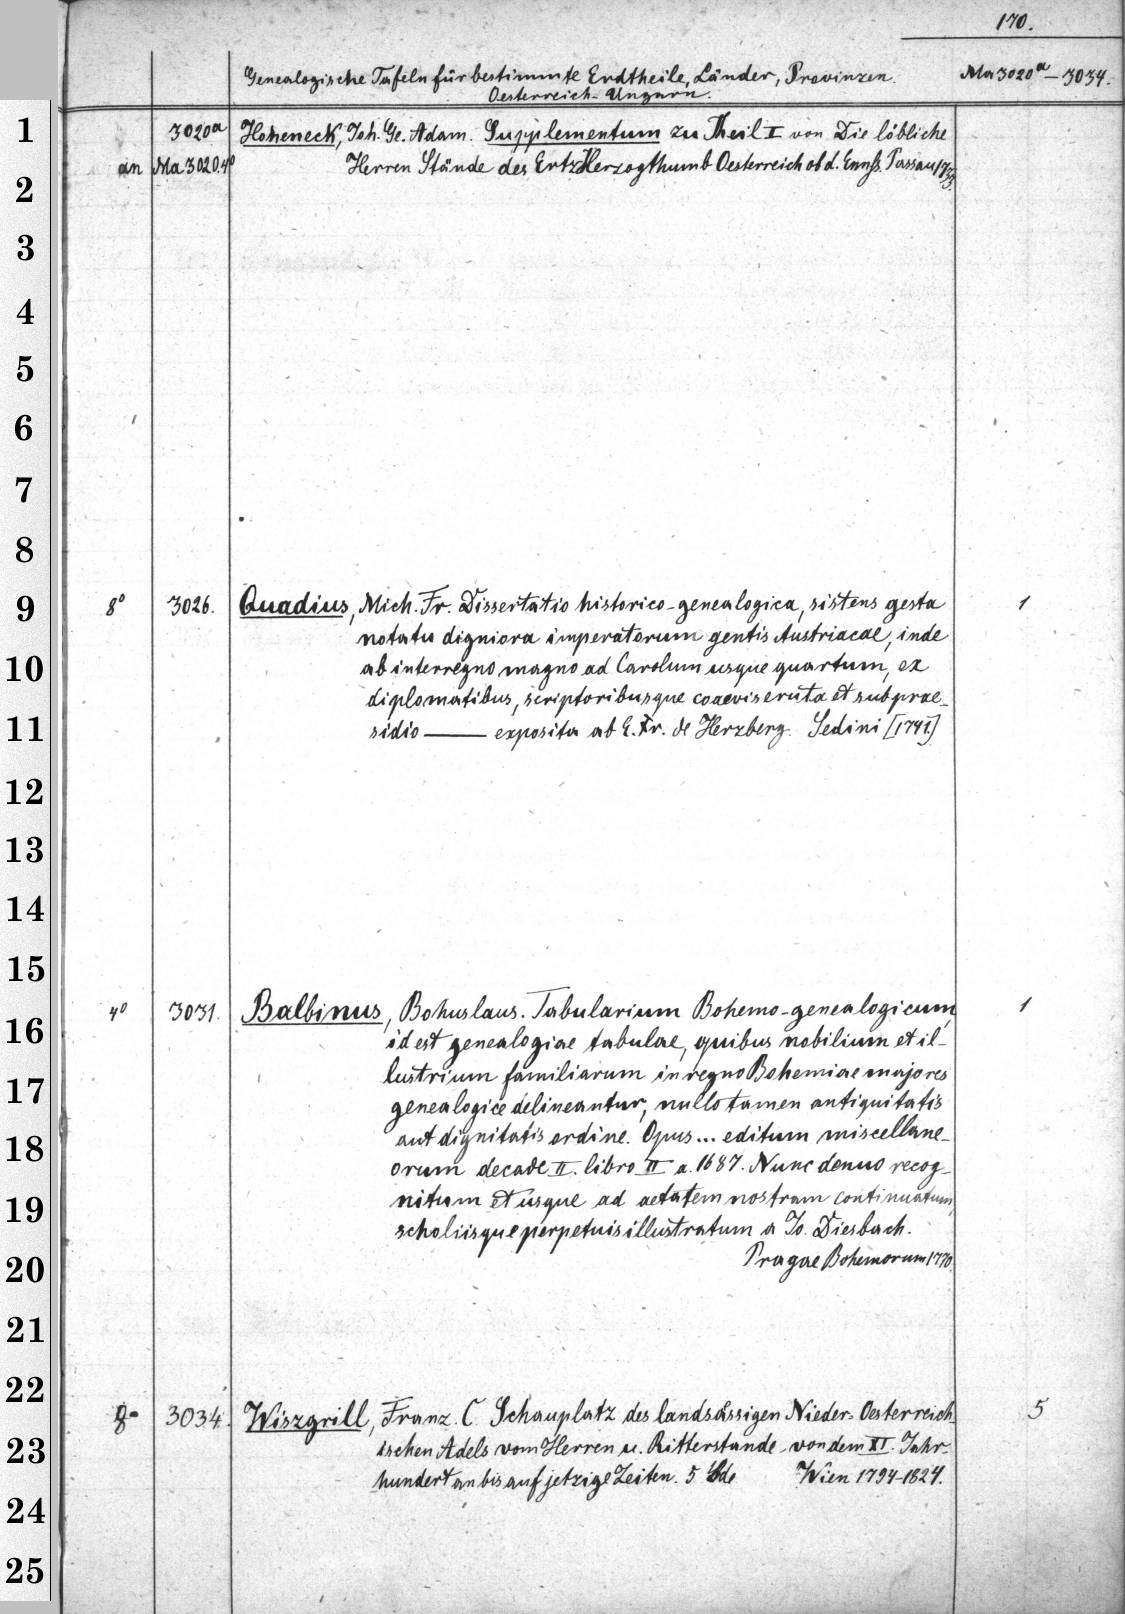 170.
Genealogische Tafeln für bestimmte Erdtheile, Länder, Provinzen.
Ma 3020a–3034.
Oesterreich-Ungarn.
1
3020a Hoheneck, Joh. Ge. Adam. Supplementum zu Theil I von Die löbliche
an Ma 3020.4° Herren Stände des ErtzHerzogthumb Oesterreich ob d. Ennß. Passau 1733.
2
3
4
5
6
7
8
9
8° 3026. Quadius, Mich. Fr. Dissertatio historico-genealogica, sistens gesta 1
notatu digniora imperatorum gentis Austriacae, inde
10
ab interregno magno ad Carolum usque quartum, ex
diplomatibus, scriptoribusque coaevis eruta et sub prae-
11
sidio ——— exposita ab E. Fr. de Herzberg. Sedini [1741.]
12
13
14
15
4° 3031. Balbinus, Bohuslaus. Tabularium Bohemo-genealogicum, 1
16
id est genealogiae tabulae, quibus nobilium et il-
lustrium familiarum in regno Bohemiae majores
17
genealogice delineantur, nullo tamen antiquitatis
aut dignitatis ordine. Opus... editum miscellane-
18
orum decade II. libro II a. 1687. Nunc denuo recog-
nitum et usque ad aetatem nostram continuatum,
19
scholiisque perpetuis illustratum a Jo. Diesbach.
Pragae Bohemorum 1770.
20
21
22
8° 3034. Wiszgrill, Franz. C. Schauplatz des landsässigen Nieder-Oesterreich- 5
23
ischen Adels vom Herren u. Ritterstande von dem XI. Jahr-
hundert an bis auf jetzige Zeiten. 5 Bde Wien 1794-1824.
24
25